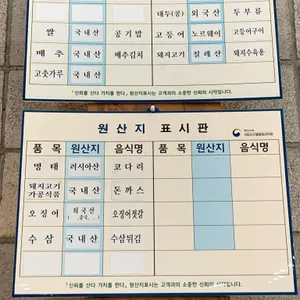 대두(콩) 외국산 두부류
쌀 국내산 공기밥 고등어 노르웨이 고등어구이
배추 국내산 배추김치 돼지고기 칠레산 돼지수육용
고춧가루 국내산
「신뢰를 산다 가치를 판다」 원산지표시는 고객과의 소중한 신뢰의 시작입니다.
원산지 표시판
품목 원산지 음식명 품목 원산지 음식명
명태 러시아산 코다리
돼지고기 가공식품 국내산 돈까스
오징어 외국산 오징어젓갈
수삼 국내산 수삼튀김
「신뢰를 산다 가치를 판다」 원산지표시는 고객과의 소중한 신뢰의 시작입니다.